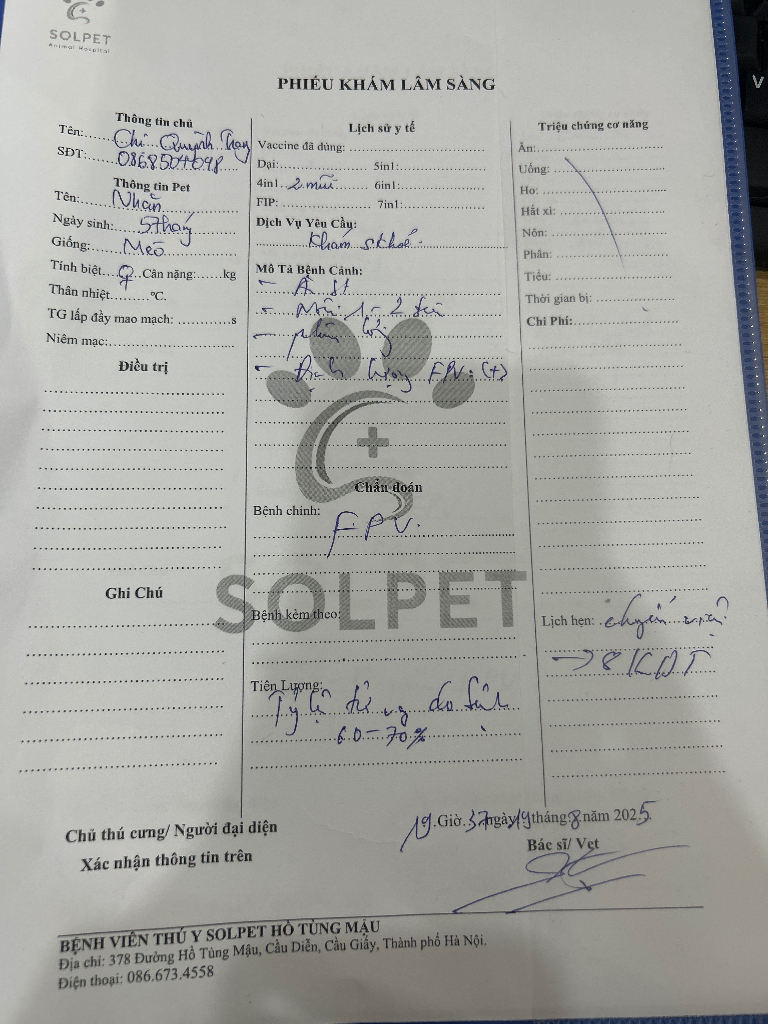 SOLPET
Animal Hospital
PHIẾU KHÁM LÂM SÀNG
Thông tin chủ
Tên: Chị Quỳnh Trang
SĐT: 0868504098
Thông tin Pet
Tên: Nhàn
Ngày sinh: 5 tháng
Giống: Mèo
Tính biệt ♀ Cân nặng: kg
Thân nhiệt °C.
TG lấp đầy mao mạch: s
Niêm mạc:
Điều trị
Ghi Chú
Lịch sử y tế
Vaccine đã dùng:
Dại: 5in1:
4in1 2 mũi 6in1:
FIP: 7in1:
Dịch Vụ Yêu Cầu:
Khám s.khoẻ
Mô Tả Bệnh Cảnh:
-
- Nôn 1-2
- phân lỏng
- Định lượng FPV: (+)
Chẩn đoán
Bệnh chính:
FPV.
SOLPET
Bệnh kèm theo:
Tiên Lượng:
Tỷ lệ tử vg do
60-70%
Triệu chứng cơ năng
Ăn:
Uống:
Ho:
Hắt xì:
Nôn:
Phân:
Tiểu:
Thời gian bị:
Chi Phí:
Lịch hẹn: chuyển viện
→ 8 KĐT
19 Giờ 37 ngày 19 tháng 8 năm 2025
Chủ thú cưng/ Người đại diện
Xác nhận thông tin trên
Bác sĩ/ Vet
BỆNH VIỆN THÚ Y SOLPET HỒ TÙNG MẬU
Địa chỉ: 378 Đường Hồ Tùng Mậu, Cầu Diễn, Cầu Giấy, Thành phố Hà Nội.
Điện thoại: 086.673.4558